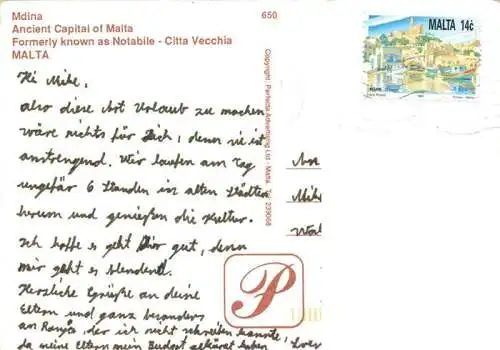 Mdina
Ancient Capital of Malta
Formerly known as Notabile - Citta Vecchia
MALTA
650
MALTA 14c
Copyright Perfecta Advertising Ltd - Malta. Tel: 233068
Hi Mike,
also diese Art Urlaub zu machen
wäre nichts für Dich, denn sie ist
anstrengend. Wir laufen am Tag
ungefär 6 Stunden in alten Städten
herum und genießen die Kultur.
Ich hoffe es geht Dir gut, denn
mir geht es blendend.
Herzliche Grüße an deine
Eltern und ganz besonders
an Ranja, der ich nicht schreiben konnte,
da meine Eltern mein Budget gekürzt haben
P